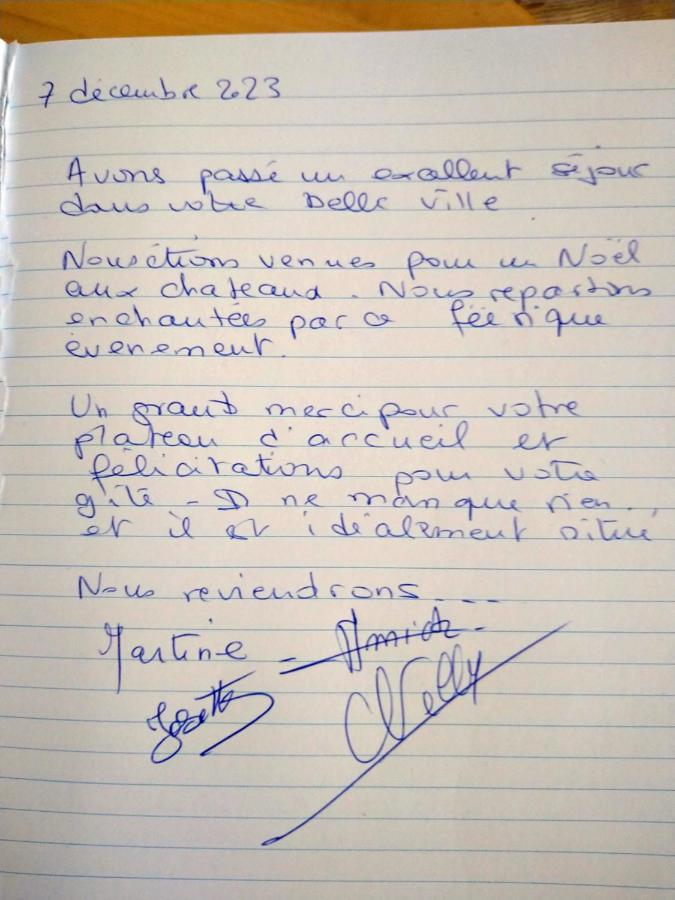 7 décembre 2023
Avons passé un excellent séjour
dans votre belle ville
Nous étions venues pour un Noël
aux chateaux. Nous repartons
enchantées par ce féérique
évenement.
Un grand merci pour votre
plateau d'accueil et
félicitations pour votre
gîte - Il ne manque rien.
et il est idéalement situé
Nous reviendrons ....
Martine =
Nelly